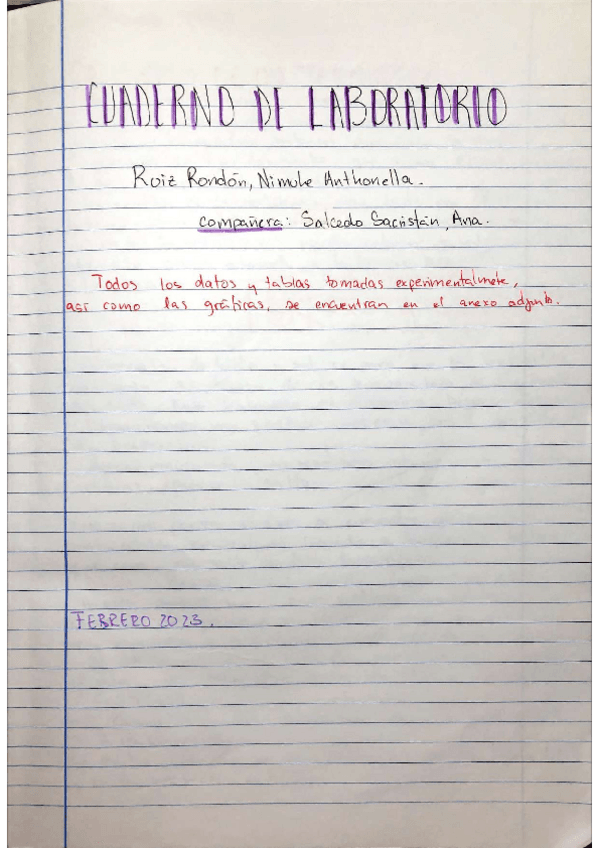 CUADERNO DE LABORATORIO
Ruiz Rondón, Nimole Anthonella.
compañera: Salcedo Sacristán, Ana.
Todos los datos y tablas tomadas experimentalmete,
así como las gráficas, se encuentran en el anexo adjunto.
FEBRERO 2023.